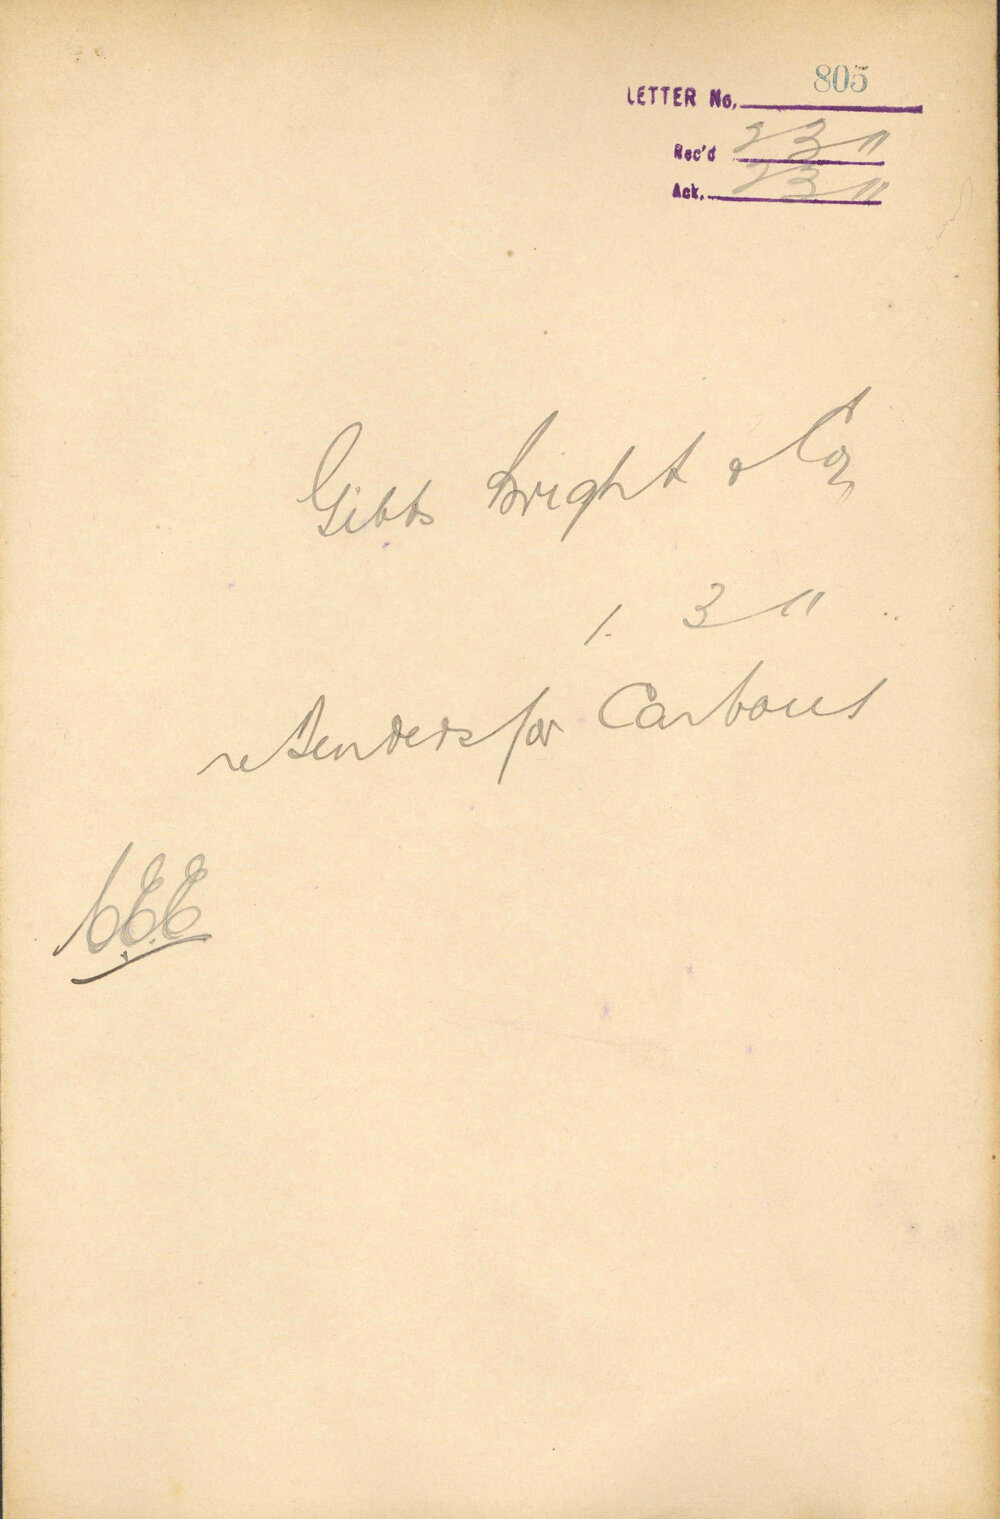 805
LETTER No.
Rec'd 2 3 11
Ack. 2 3 11
Gibbs Bright & Co
1. 3 11
re Tenders for Carbons